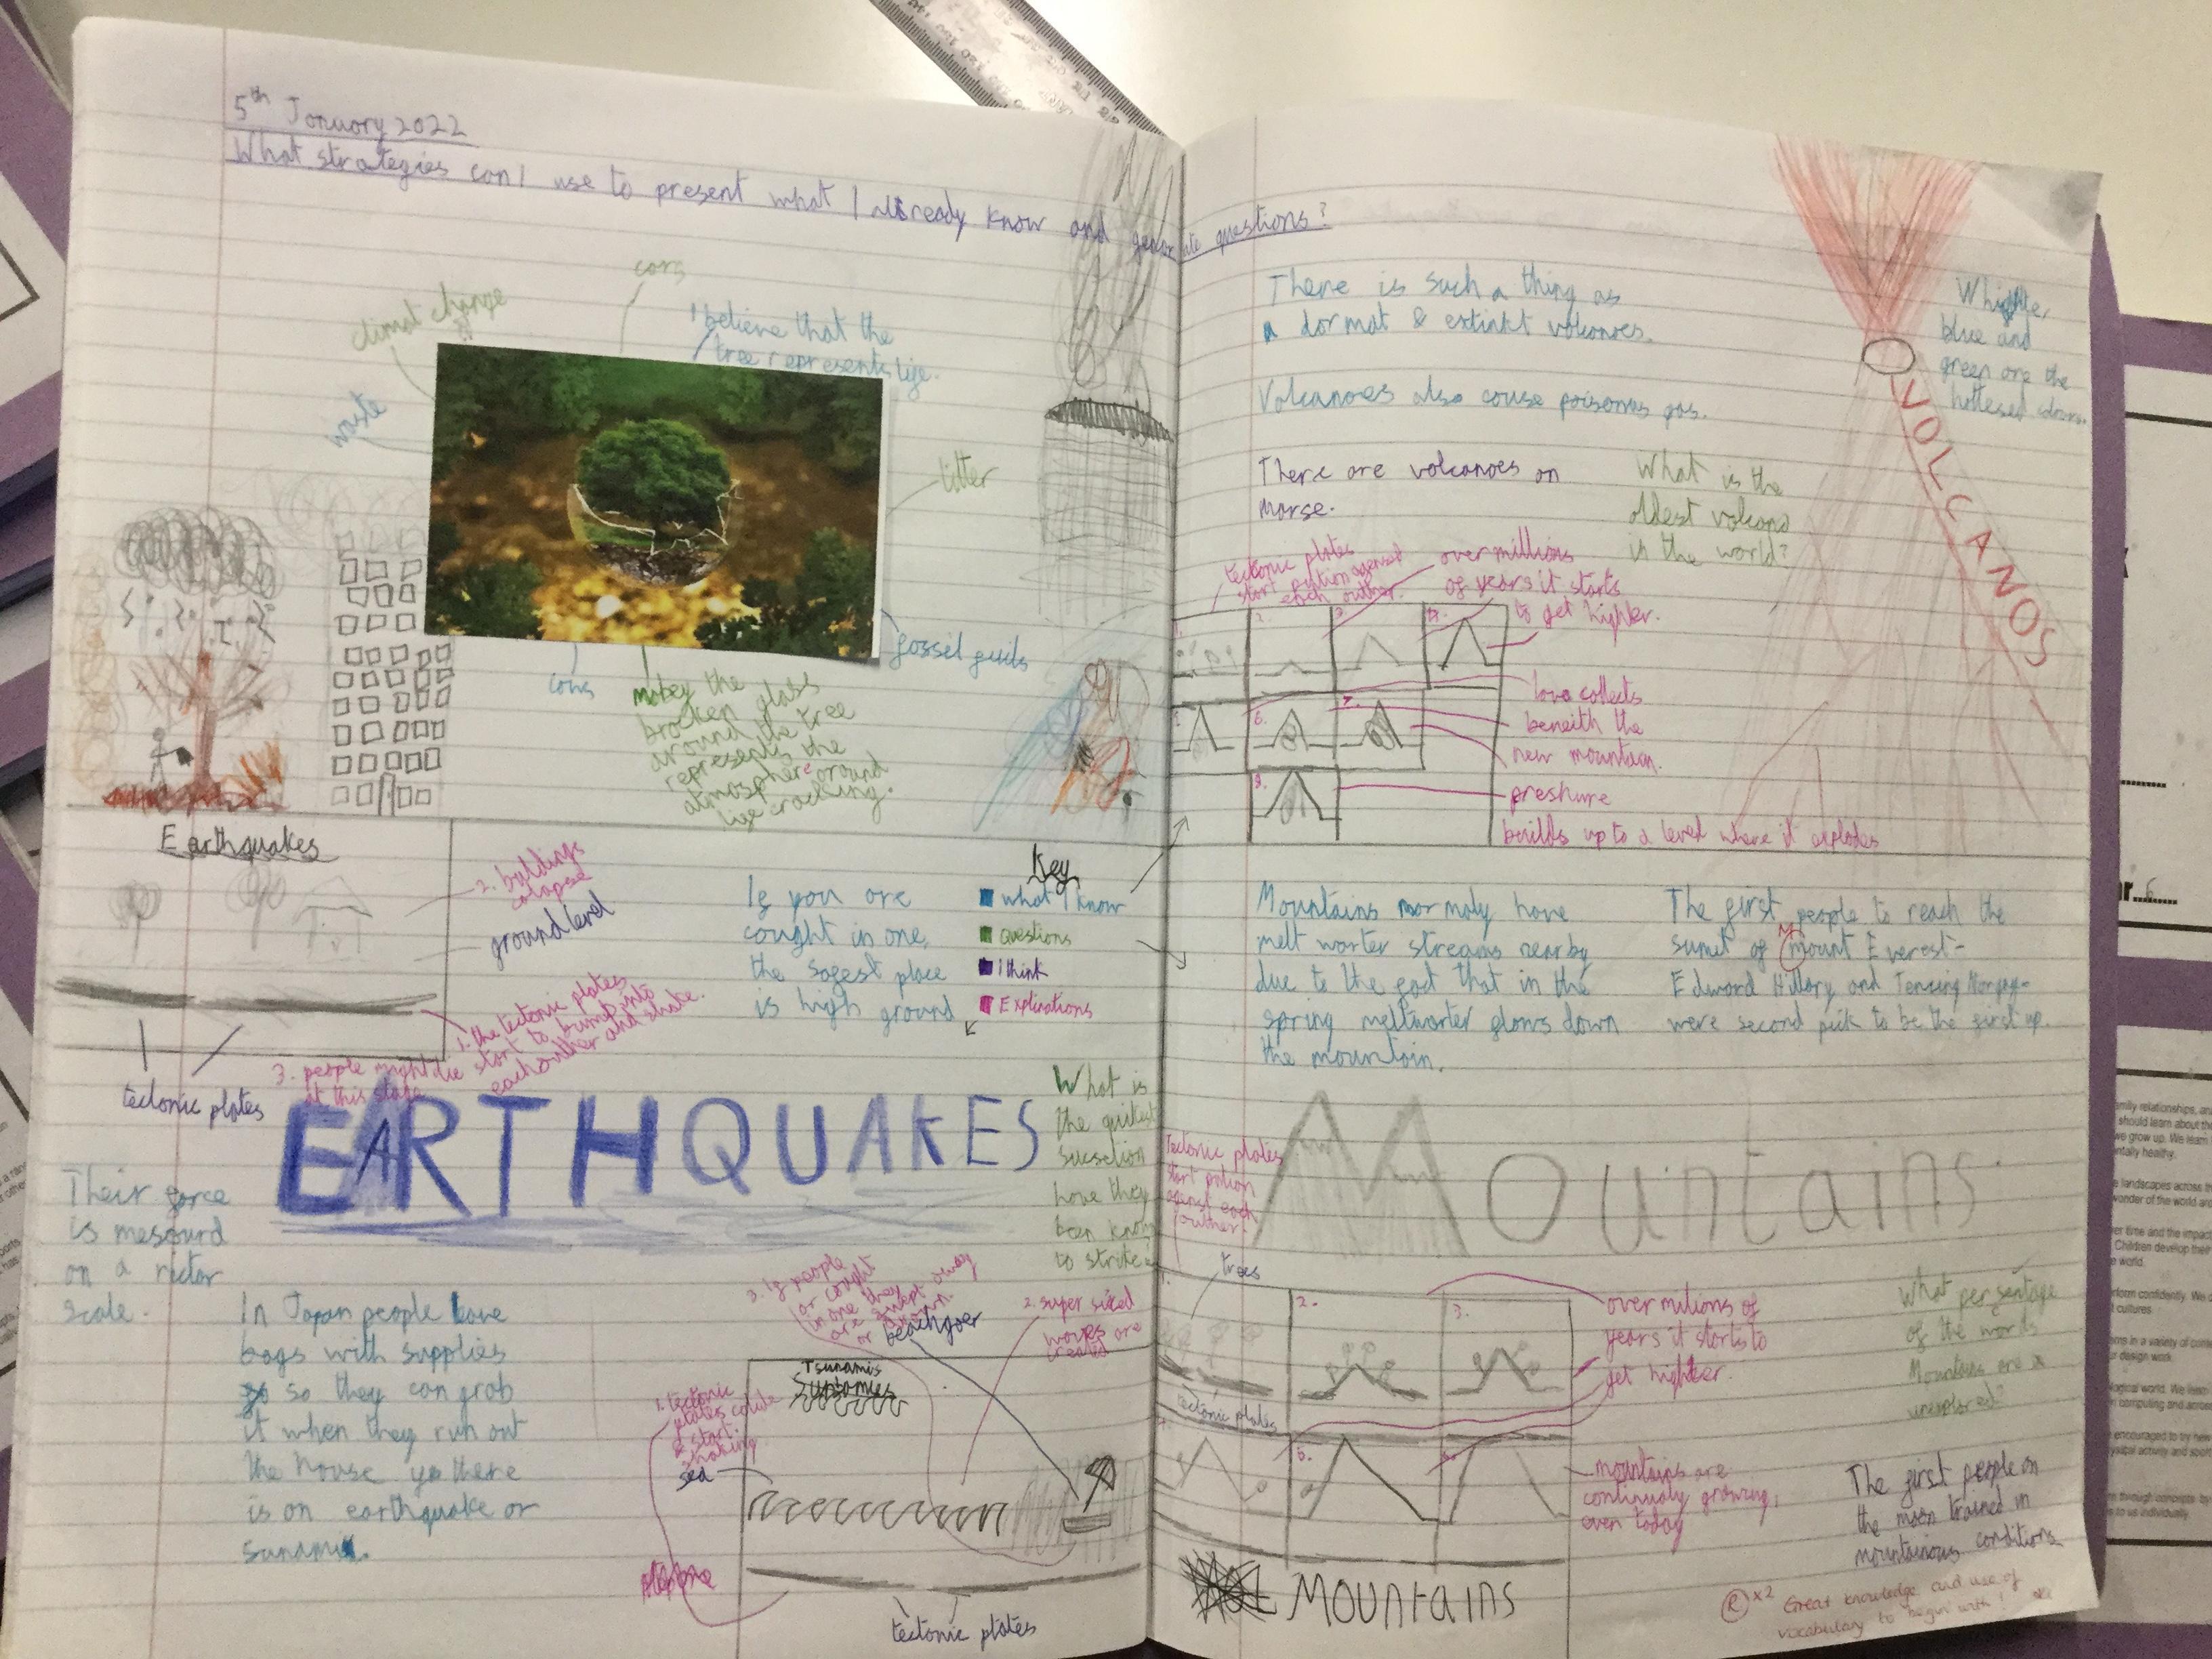 5th January 2022
What strategies can I use to present what I already know and generate questions?
climat change
cars
I believe that the
tree represents life.
waste
litter
fossel fuils
cows
mabey the
brocken glass
around the tree
represents the
atmosphere around
use cracking.
Earthquakes
2. buildings
colapse
ground level
1. the tectonic plates
start to bump into
each outher and shake.
3. people might die
at this stage
tectonic plates
If you are
cought in one,
the safest place
is high ground
Key
what I know
questions
I think
Explinations
EARTHQUAKES
What is
the quikest
sucsetion
have they
been known
to strike
Their force
is mesourd
on a rictor
scale.
In Japan people have
bags with supplies
so they can grab
it when they run out
the house if there
is an earthquake or
sunami.
3. If people
or cought
in one they
are swept away
or drown.
beach goer
2. super sized
waves are
created
Tsunamis
1. tectonic
plates colide
& start
shaking
sea
tectonic plates
There is such a thing as
a dormat & extinkt volcanoes.
Volcanoes also couse poisonus gas.
There are volcanoes on
marse.
What is the
oldest volcano
in the world?
Whight,
blue and
green are the
hottesed colours.
VOLCANOS
tectonic plates
start pution agenst
each outher.
over millions
of years it starts
to get highter.
1.
2.
3.
4.
6.
7.
8.
lava collects
beneith the
new mountain.
preshure
builds up to a level where it explodes
Mountains normaly have
melt worter streams nearby
due to the fact that in the
spring meltworter flows down
the mountain.
The first people to reach the
sumit of mount Everest-
Edward Hillary and Tenzing Norgay-
were second pick to be the first up.
M
Mountains
tectonic plates
start pution
against each
outher
trees
1.
2.
3.
5.
tectonic plates
over milions of
years it starts to
get highter.
mountains are
continualy growing,
even today
What persentage
of the words
Mountains are
unexplored?
The first people on
the moon trained in
mountainous conditions
MOUNTAINS
R x2 Great knowledge and use of
vocabulary to begin with!
ar 6
amily relationships, an
should learn about the
we grow up. We learn
entally healthy.